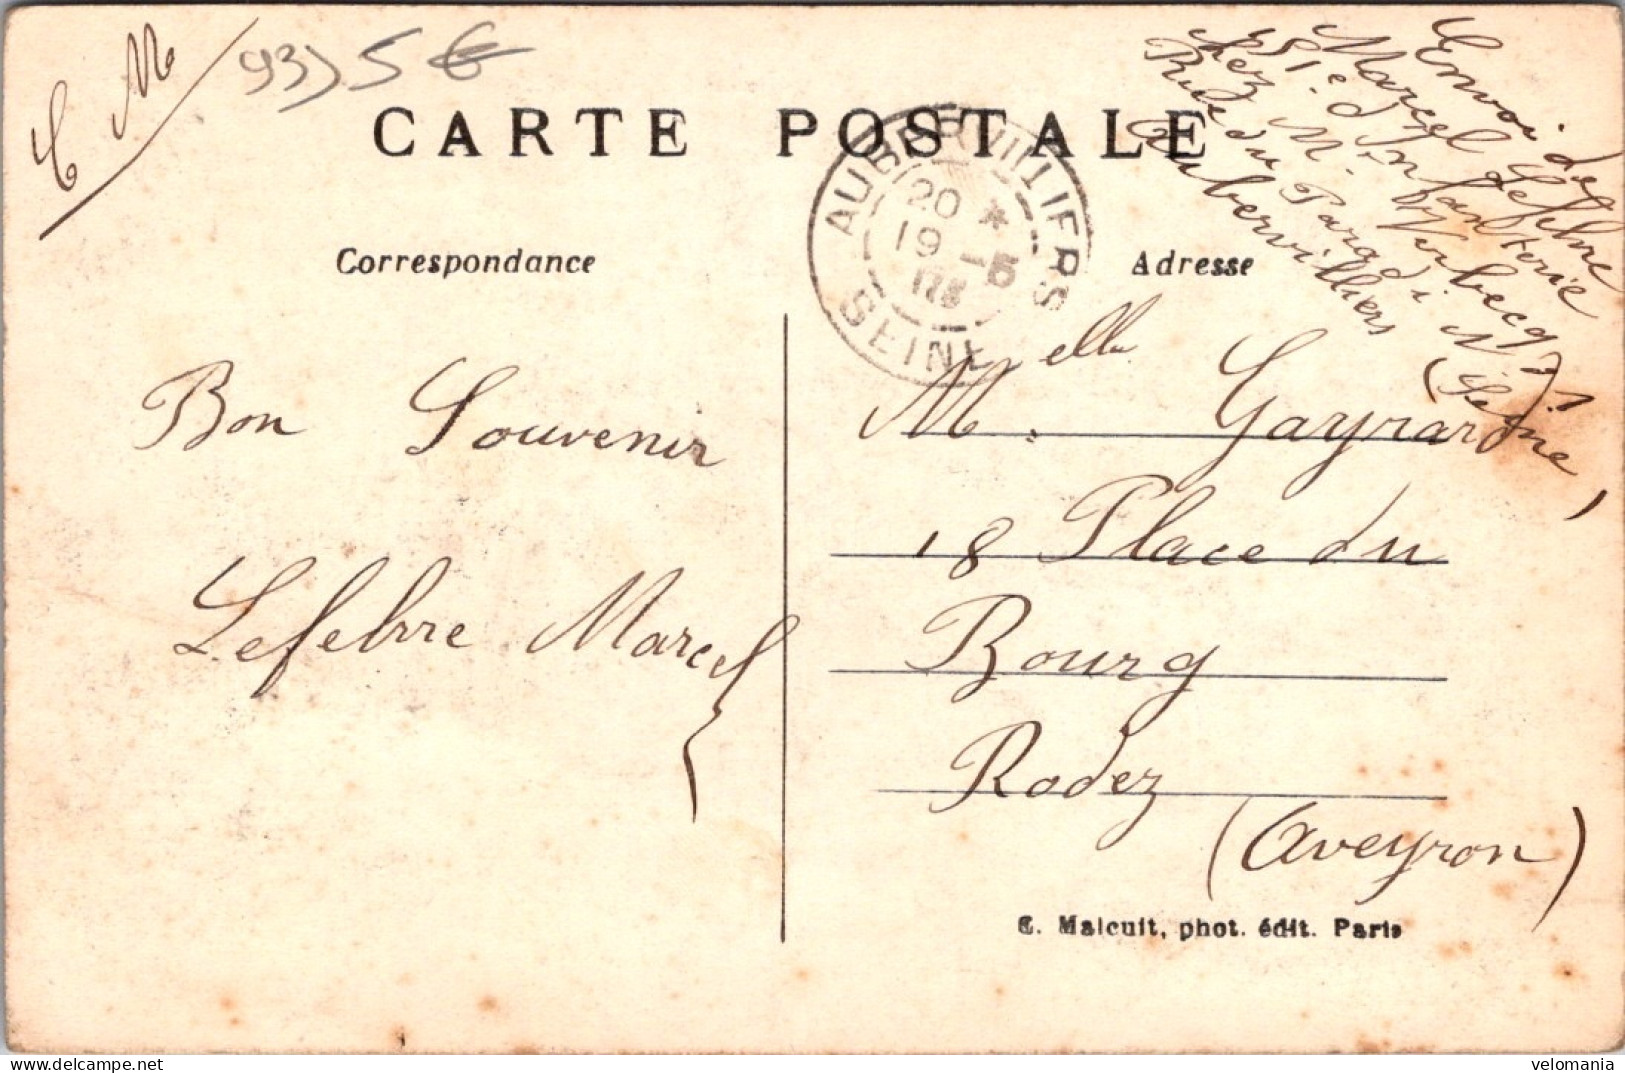 C M
93) 5 €
CARTE POSTALE
Correspondance
Adresse
AUBERVILLIERS
20 *
19 -5
SEINE
Envoi de
Marcel Lefebvre
151e d'Infanterie
chez M. Verbecq
Rue du Parc N° 1
Aubervilliers (Seine)
Bon Souvenir
Lefebvre Marcel
Melle Gayrard
18 Place du
Bourg
Rodez
(Aveyron)
C. Malcuit, phot. édit. Paris
velomania